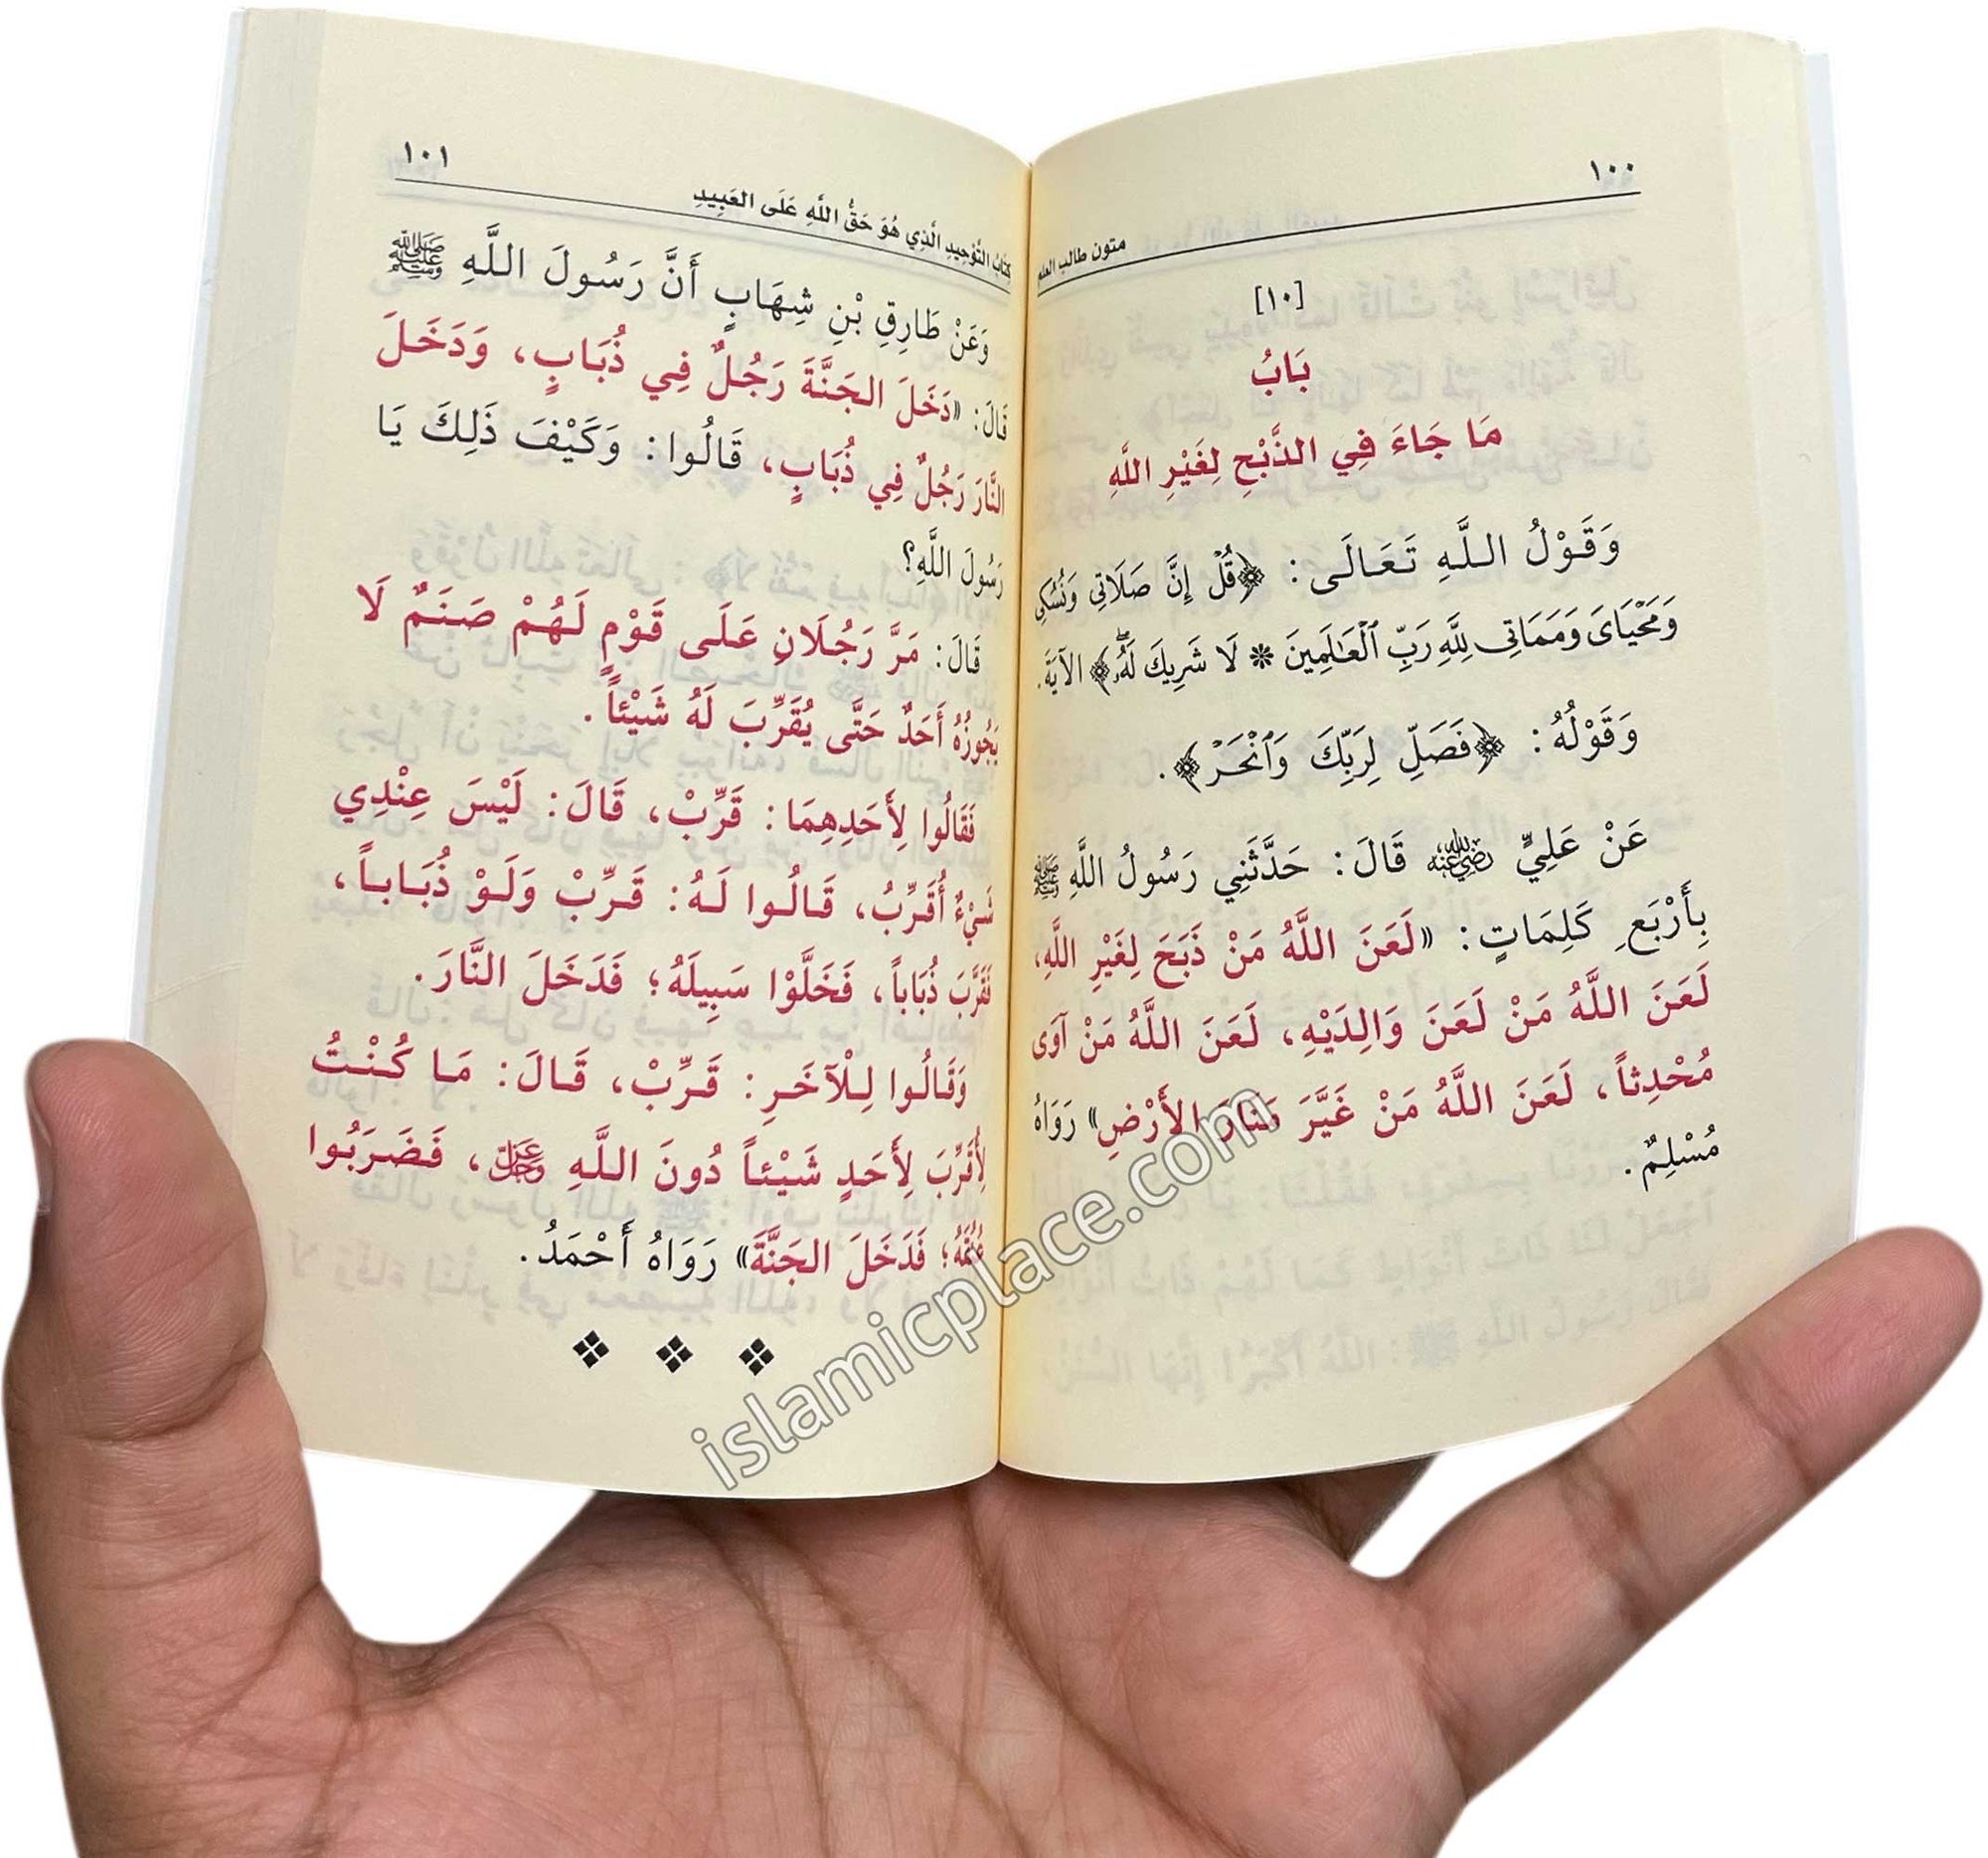 ١٠٠
متون طالب العلم
[١٠]
بَابُ
مَا جَاءَ فِي الذَّبْحِ لِغَيْرِ اللَّهِ
وَقَوْلُ اللَّهِ تَعَالَى: ﴿قُلْ إِنَّ صَلَاتِي وَنُسُكِي
وَمَحْيَايَ وَمَمَاتِي لِلَّهِ رَبِّ ٱلْعَـٰلَمِينَ * لَا شَرِيكَ لَهُۥ﴾ الآيَةَ.
وَقَوْلُهُ: ﴿فَصَلِّ لِرَبِّكَ وَٱنْحَرْ﴾.
عَنْ عَلِيٍّ رضي الله عنه قَالَ: حَدَّثَنِي رَسُولُ اللَّهِ ﷺ
بِأَرْبَعِ كَلِمَاتٍ: «لَعَنَ اللَّهُ مَنْ ذَبَحَ لِغَيْرِ اللَّهِ،
لَعَنَ اللَّهُ مَنْ لَعَنَ وَالِدَيْهِ، لَعَنَ اللَّهُ مَنْ آوَى
مُحْدِثاً، لَعَنَ اللَّهُ مَنْ غَيَّرَ مَنَارَ الأَرْضِ» رَوَاهُ
مُسْلِمٌ.
١٠١
كِتَابُ التَّوْحِيدِ الَّذِي هُوَ حَقُّ اللَّهِ عَلَى العَبِيدِ
وَعَنْ طَارِقِ بْنِ شِهَابٍ أَنَّ رَسُولَ اللَّهِ ﷺ
قَالَ: «دَخَلَ الجَنَّةَ رَجُلٌ فِي ذُبَابٍ، وَدَخَلَ
النَّارَ رَجُلٌ فِي ذُبَابٍ، قَالُوا: وَكَيْفَ ذَلِكَ يَا
رَسُولَ اللَّهِ؟
قَالَ: مَرَّ رَجُلَانِ عَلَى قَوْمٍ لَهُمْ صَنَمٌ لَا
يَجُوزُهُ أَحَدٌ حَتَّى يُقَرِّبَ لَهُ شَيْئاً.
فَقَالُوا لِأَحَدِهِمَا: قَرِّبْ، قَالَ: لَيْسَ عِنْدِي
شَيْءٌ أُقَرِّبُ، قَالُوا لَهُ: قَرِّبْ وَلَوْ ذُبَاباً،
فَقَرَّبَ ذُبَاباً، فَخَلَّوْا سَبِيلَهُ؛ فَدَخَلَ النَّارَ.
وَقَالُوا لِلْآخَرِ: قَرِّبْ، قَالَ: مَا كُنْتُ
لِأُقَرِّبَ لِأَحَدٍ شَيْئاً دُونَ اللَّهِ عَزَّ وَجَلَّ، فَضَرَبُوا
عُنُقَهُ؛ فَدَخَلَ الجَنَّةَ» رَوَاهُ أَحْمَدُ.
islamicplace.com